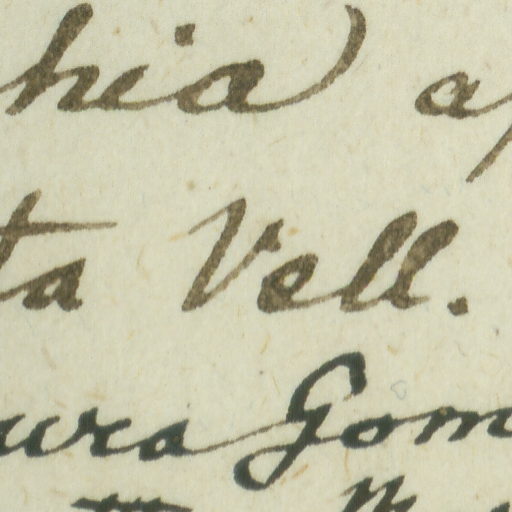 hia a
ta Vell.
ura Gom